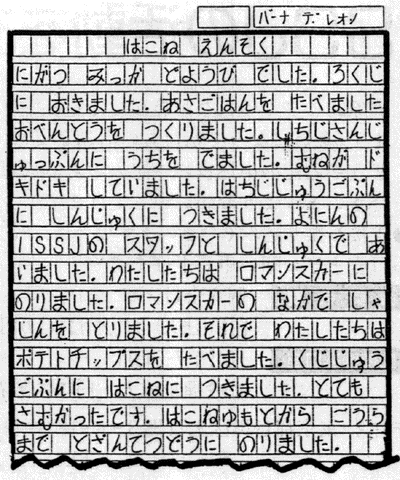 バーナ デレオン
はこね えんそく
にがつ みっか どようび でした。ろくじ
に おきました。あさごはんを たべました
おべんとうを つくりました。しちじさんじ
ゅっぷんに うちを でました。むねが ド
キドキ していました。はちじじゅうごぷん
に しんじゅくに つきました。よにんの
ISSJの スタッフと しんじゅくで あ
いました。わたしたちは ロマンスカーに
のりました。ロマンスカーの なかで しゃ
しんを とりました。それで わたしたちは
ポテトチップスを たべました。くじじゅう
ごぷんに はこねに つきました。とても
さむかったです。はこねゆもとから ごうら
まで とざんてつどうに のりました。